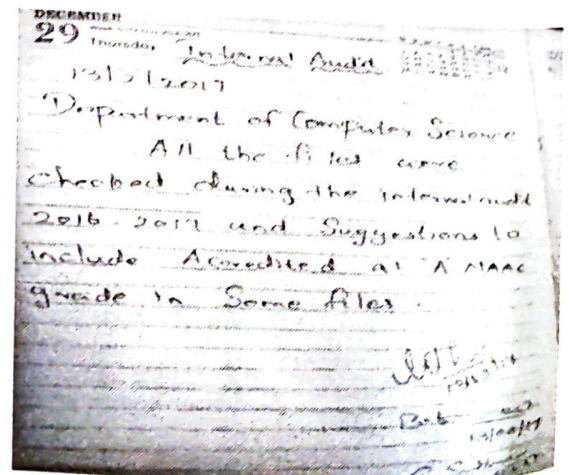 DECEMBER
29 Thursday Internal Audit
13/2/2017
Department of Computer Science
All the files were
checked during the internal audit
2016-2017 and Suggestions to
include Accredited at 'A' NAAC
grade in Some files.